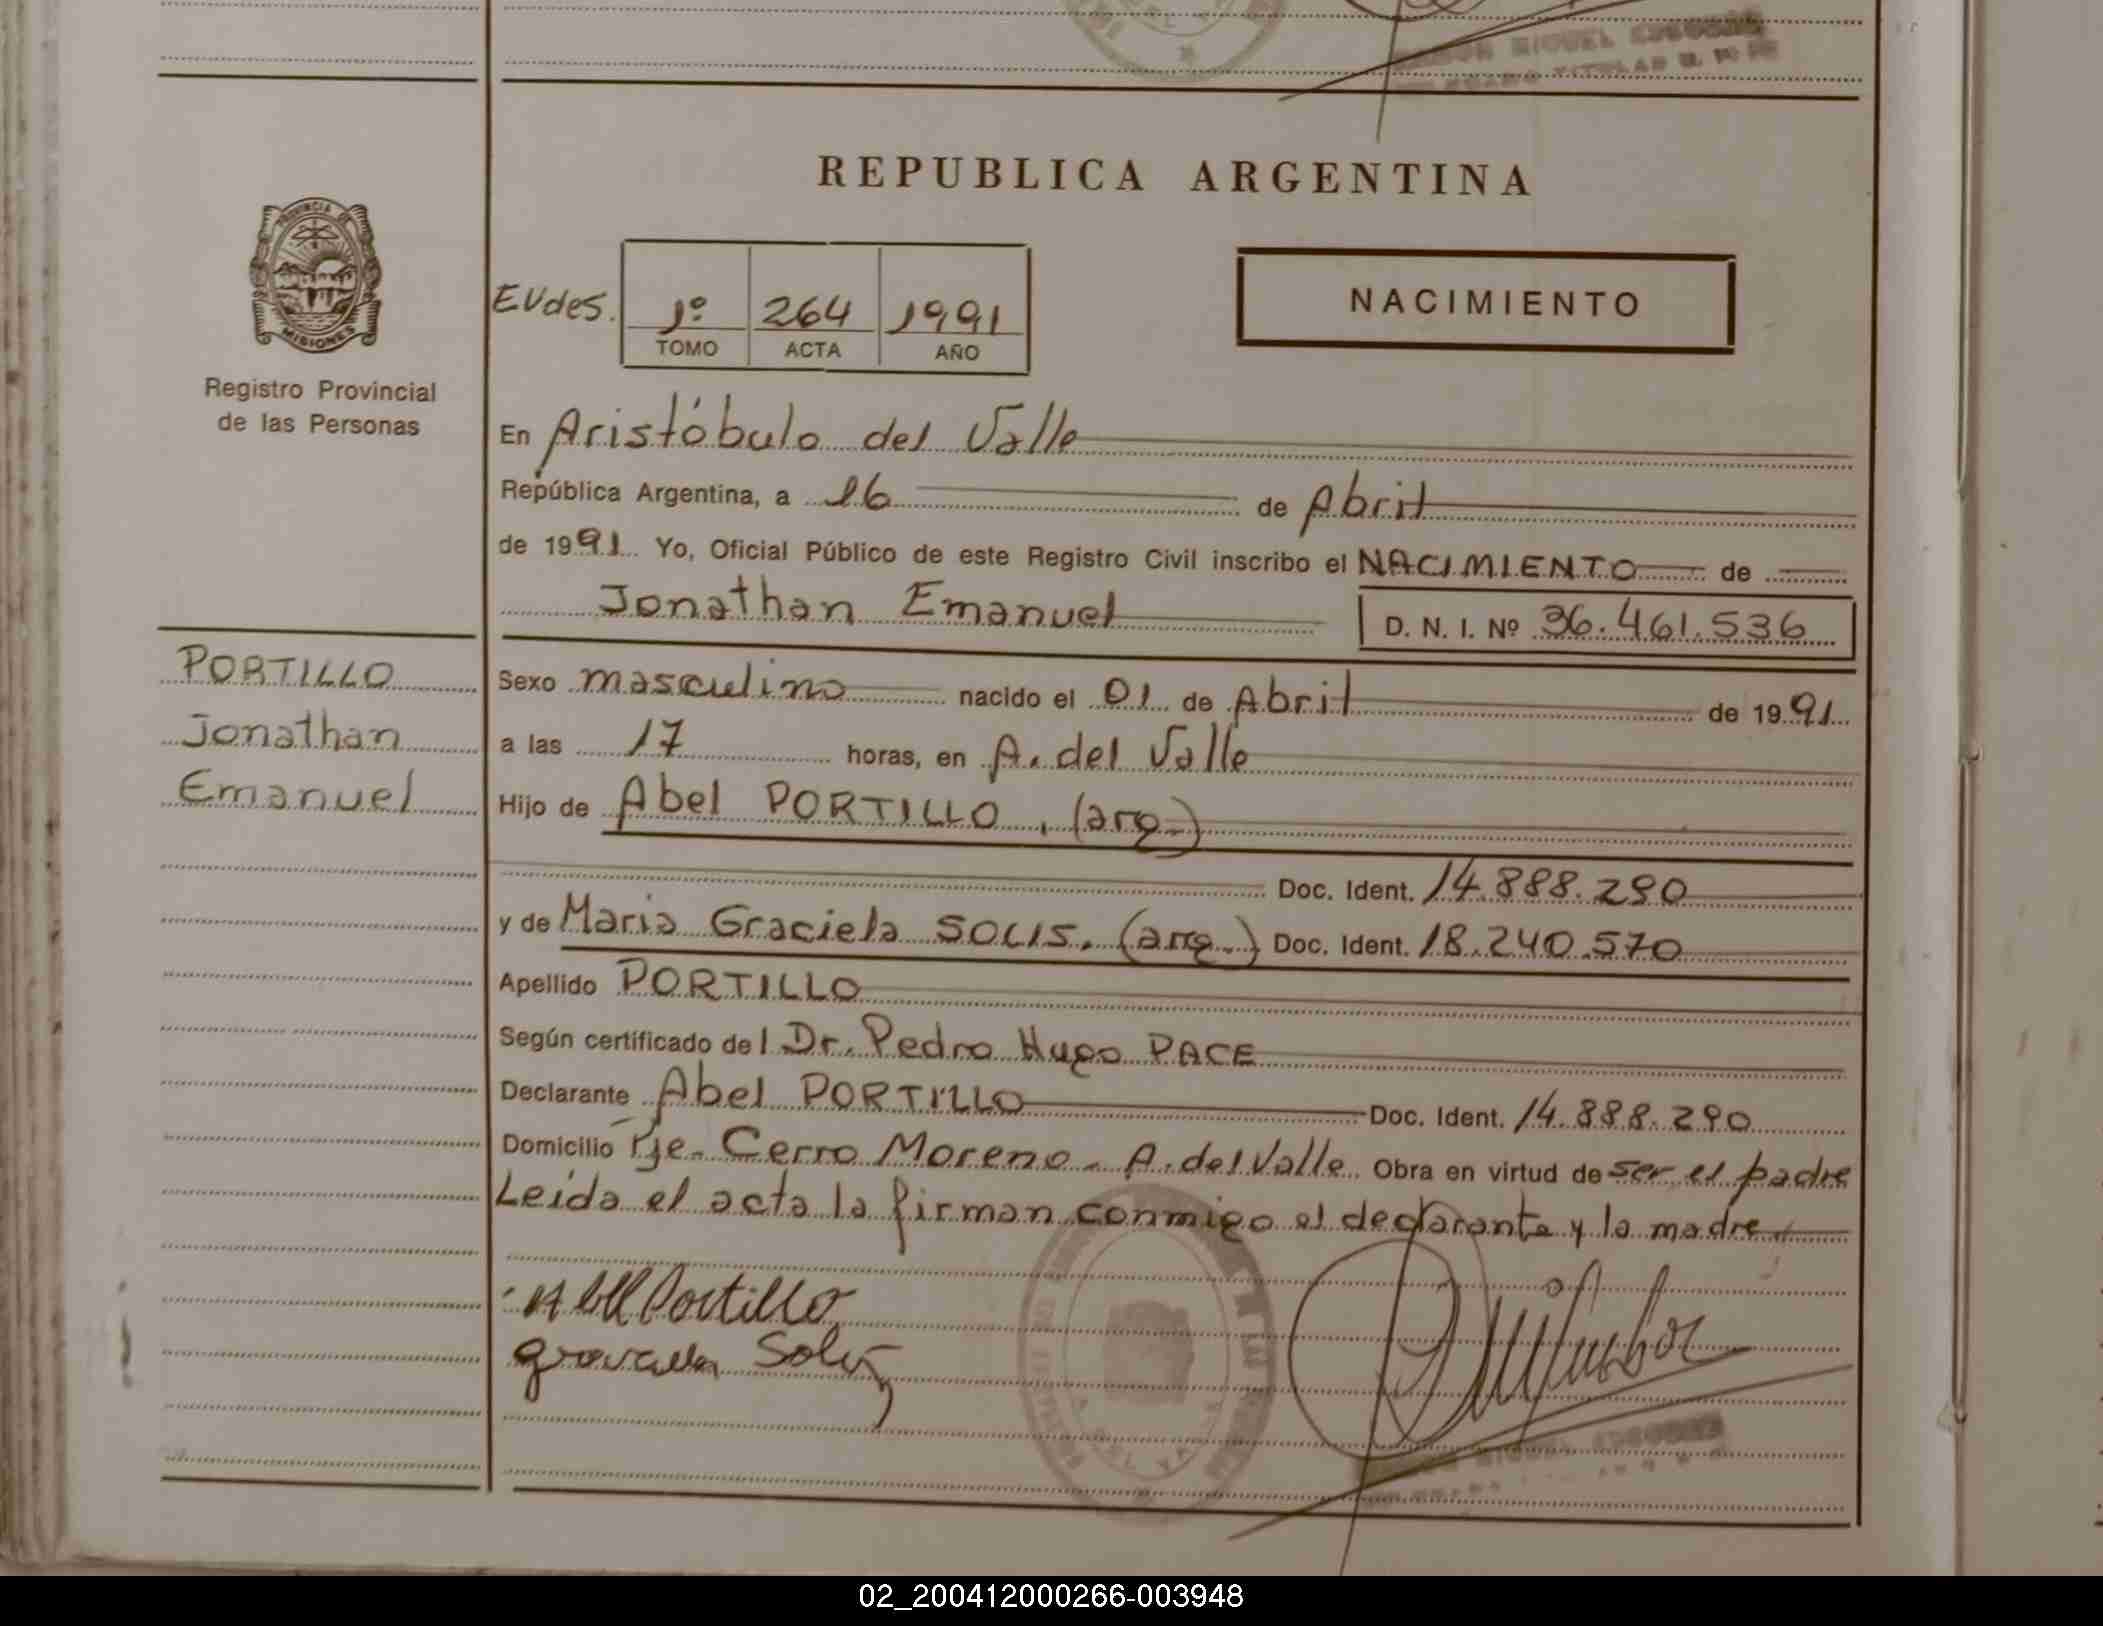 REPUBLICA ARGENTINA
PROVINCIA DE
MISIONES
Registro Provincial
de las Personas
EUdes.
1º 264 1991
TOMO ACTA AÑO
NACIMIENTO
En Aristóbulo del Valle
República Argentina, a 16 de Abril
de 1991. Yo, Oficial Público de este Registro Civil inscribo el NACIMIENTO de
Jonathan Emanuel D. N. I. Nº 36.461.536
PORTILLO
Jonathan
Emanuel
Sexo masculino nacido el 01 de Abril de 1991
a las 17 horas, en A. del Valle
Hijo de Abel PORTILLO, (arg.)
Doc. Ident. 14.888.290
y de Maria Graciela SOLIS. (arg.) Doc. Ident. 18.240.570
Apellido PORTILLO
Según certificado del Dr. Pedro Hugo PACE
Declarante Abel PORTILLO Doc. Ident. 14.888.290
Domicilio Pje. Cerro Moreno - A. del Valle Obra en virtud de ser el padre
Leída el acta la firman conmigo el declarante y la madre
Abel Portillo
Solis
02_200412000266-003948